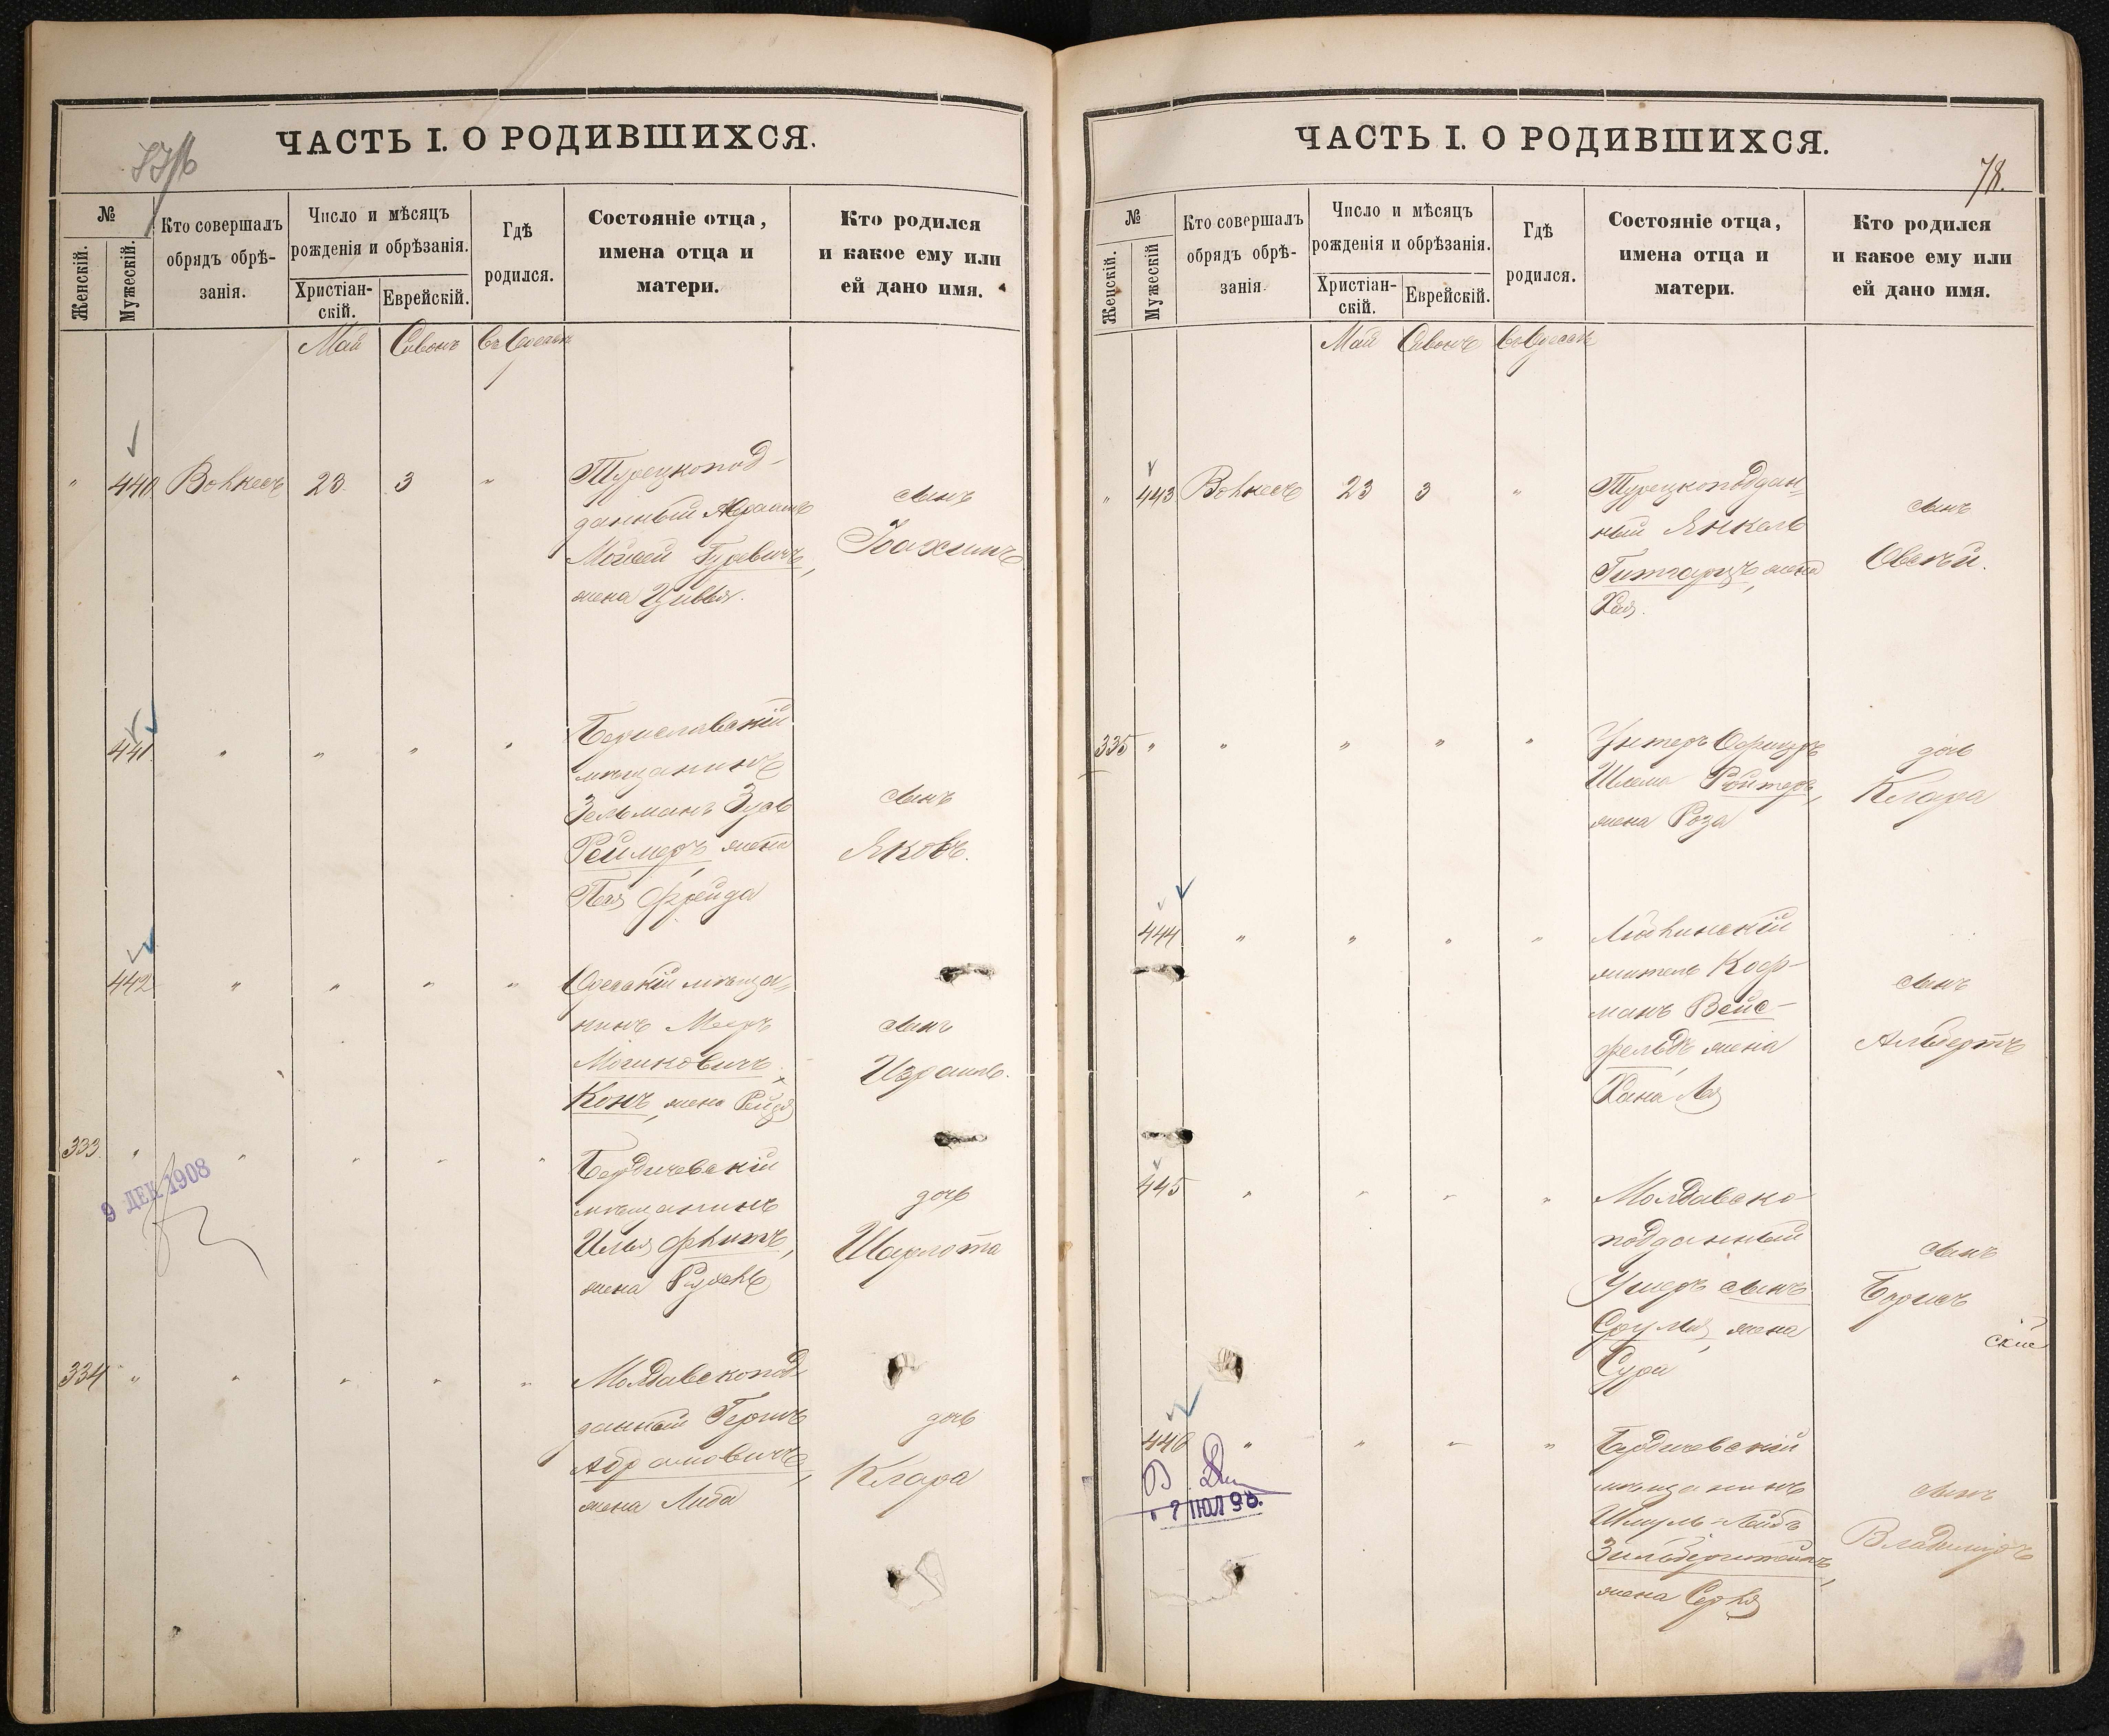 ЧАСТЬ I. О РОДИВШИХСЯ.
№
Женскій.
Мужескій.
Кто совершалъ
обрядъ обрѣ-
занія.
Число и мѣсяцъ
рожденія и обрѣзанія.
Христіан-
скій.
Еврейскій.
Гдѣ
родился.
Состояніе отца,
имена отца и
матери.
Кто родился
и какое ему или
ей дано имя.
Май Сивонъ Въ Одессѣ
" 440 23 3 "
Турецкопод-
данный Абрамъ
Мойсей Гуревичъ,
жена Цивья.
сынъ
Іоахимъ
441 " " " "
Бериславскій
мѣщанинъ
Зельманъ Зусь
Реймеръ, жена
Пая Фрейда
сынъ
Яковъ.
442 " " " "
Одесскій мѣща-
нинъ Мееръ
Конъ, жена Рейзя
сынъ
Израиль.
333. " " " " "
9 ДЕК 1908
Бердичевскій
мѣщанинъ
жена Рухль
дочь
Шарлота
334 " " " " "
Молдавскопод-
данный Гершъ
Абрамовичъ,
жена Либа
дочь
Клара
ЧАСТЬ I. О РОДИВШИХСЯ.
78.
№
Женскій.
Мужескій
Кто совершалъ
обрядъ обрѣ-
занія.
Число и мѣсяцъ
рожденія и обрѣзанія.
Христіан-
скій.
Еврейскій.
Гдѣ
родился.
Состояніе отца,
имена отца и
матери.
Кто родился
и какое ему или
ей дано имя.
Май Сивонъ Въ Одессѣ
" 443 23 3 "
Турецкоподдан-
ный Янкель
жена
Хая.
сынъ
Овсѣй.
335 " " " " "
Унтеръ Офицеръ
Шлема Ройтеръ,
жена Роза
дочь
Клара
444 " " " "
житель Коф-
манъ Вейс-
фельдъ, жена
Хана Лея
сынъ
Альбертъ
445 " " " "
Молдавско-
подданный
Ушеръ сынъ
Срумя, жена
Сура
сынъ
Борисъ
скій
446 " " " "
7 ІЮЛ 98.
Бердичевскій
мѣщанинъ
Шмуль-Лейбъ
Зильберштейнъ,
жена
сынъ
Владиміръ